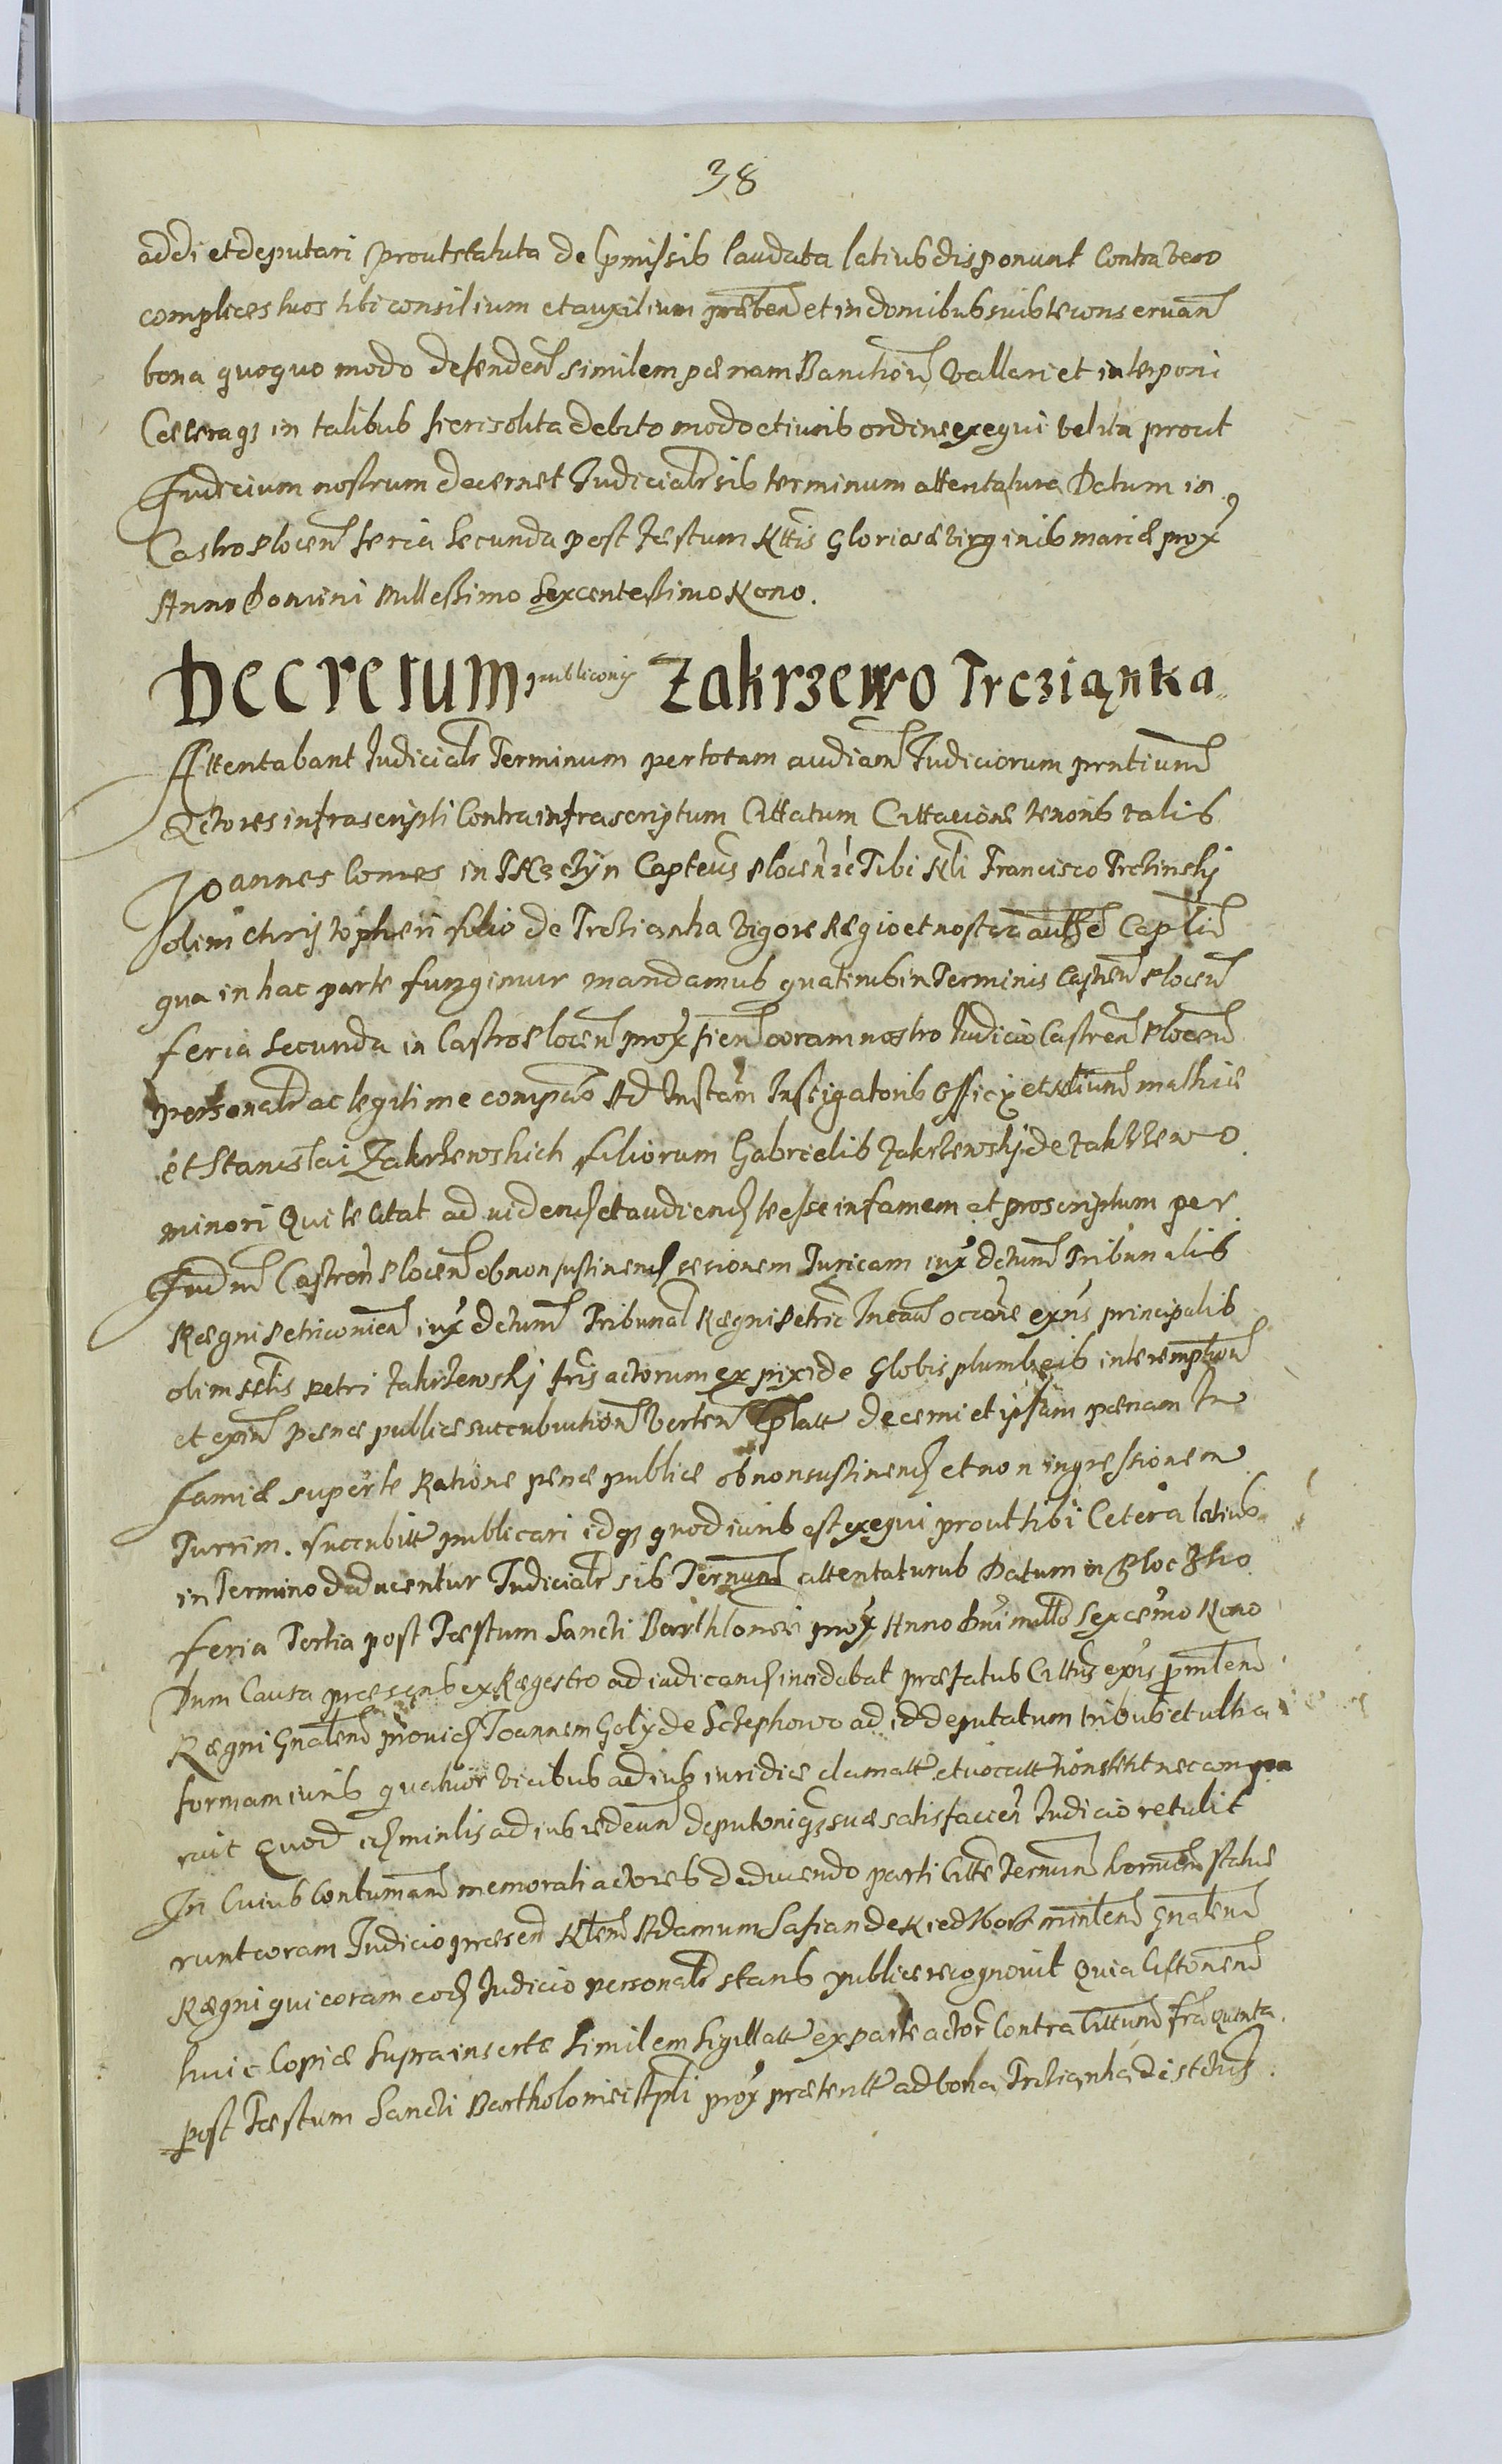 38
addi et deputari prout statuta de p̃missis laudata latius disponunt Contra vero
complices tuos tibi consilium et auxilium præben̄ et in domibus suis te conseruan̄
bona quoquo modo defenden̄ similem pœnam Vallari et interponi
Cæteraq; in talibus fieri solita debito modo et iuris ordine exequi velita prout
Iudicium nostrum decernet Iudicialr̄ sis terminum attentatura Datum in
Castro Plocen̄ feria Secunda post Fæstum Gloriosæ Virginis Mariæ prox
Anno Domini Millessimo Sexcentessimo Nono.
Decretum publiconis Zakrzewo Trczianka
Attentabant Iudicialr̄ Terminum per totam audiam̄ Iudiciorum pn̄tium̄
Actores infrascripti Contra infrascriptum Cittatum Cittacione tenoris talis
Ioannes Comes in Capteus̄ Plocen̄ zc Tibi Nli Francisco Trczinski
olim Christopheri filio de Trczianka Vigore Regio et nostra autthē Captlī
qua in hac parte fungimur mandamus quatinus in Terminis Castren̄ Plocen̄
feria Secunda in Castro Plocen̄ prox fien̄ coram nostro Iudicio Castren̄ Plocen̄
personalr̄ ac legitime compās Ad Instam̄ Instigatoris Officy et Nlium̄ Mathiæ
et Stanislai Zakrzewskich filiorum Gabrielis Zakrzewsky de Zakrzewo
minori Qui te Citat ad videnḍ et audienḍ te esse infamem et proscriptum per
Iudm̄ Castren̄ Plocen̄ ob non sustinenḍ sesionem Turicam iux̄ dctum̄ Tribunalis
Regni Petriconien̄ iux̄ dctum̄ Tribunal Regni Petric̄ In cau̅ occore expns̄ principalis
olim Nlis Petri Zakrzewsky fr̄is actorum ex pixide Globis plumbeis interemption̄
et expn̄ penæ publicæ succubuition̄ verten̄ Platt decerni et ipsam pænam In
famiæ super te Ratione penæ publicæ ob non sustinenḍ et non ingressionem
Turrim. succubitt publicari idq; quod iuris est exequi prout tibi Cetera latius
in Termino deducentur Iudicialr̄ sis Termun̄ attentaturus Datum in Plocзko
feria Tertia post Fæstum Sancti Barthlomei prox Anno Dn̄i mill̄o Sexcen̄mo Nono
Dum Causa præsens ex Regestro ad iudicanḍ incidebat præfatus Citt̄us expns̄ p minlem̄
Regni Gn̄alem̄ prouiḍ Ioannem Goly de Szczepkowo ad id deputatum tribus et ultra
formam iuris quatuor vicibus ad ius iuridice clamatt et vocatt non stetit nec compa
ruit Quod iḍ minlis ad ius redeun̄ deputoniq; suæ satisfacien̄ Iudicio retulit
In Cuius Contumam̄ memorati actores deducendo parti Citte Termun̄ Cornicem̄ statue
runt coram Iudicio præsen̄ Nlem̄ Adamum Sasian de minlem̄ Gn̄alem̄
Regni qui coram eoḍ Iudicio personalr̄ stans publice recognouit Quia Cittonem̄
huic Copiæ Supra insertæ Similem Sigillatt ex parte actor̄ Contra Cittum̄ fr̄a Quinta
post Fæstum Sancti Bartholomei Apli prox præteritt ad bona Trczianka distchus̄